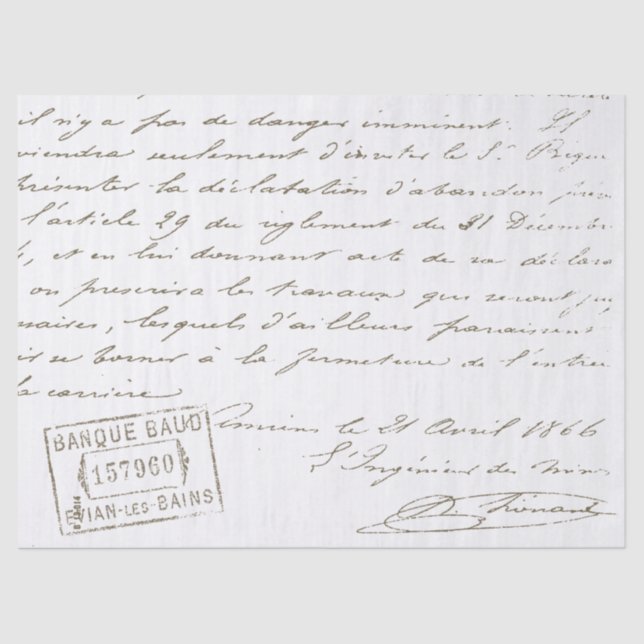 il n'y a pas de danger imminent. Il
viendra seulement d'inviter le Sr.
présenter la déclaration d'abandon
l'article 29 du règlement du 31 Décembre
, et en lui donnant acte de sa déclara
on prescrira les travaux qui seront
saires, lesquels d'ailleurs paraissent
ir se borner à la fermeture de l'entrée
la carrière
Amiens le 21 Avril 1866
L'Ingénieur des Mines
BANQUE BAUD
157960
EVIAN-LES-BAINS